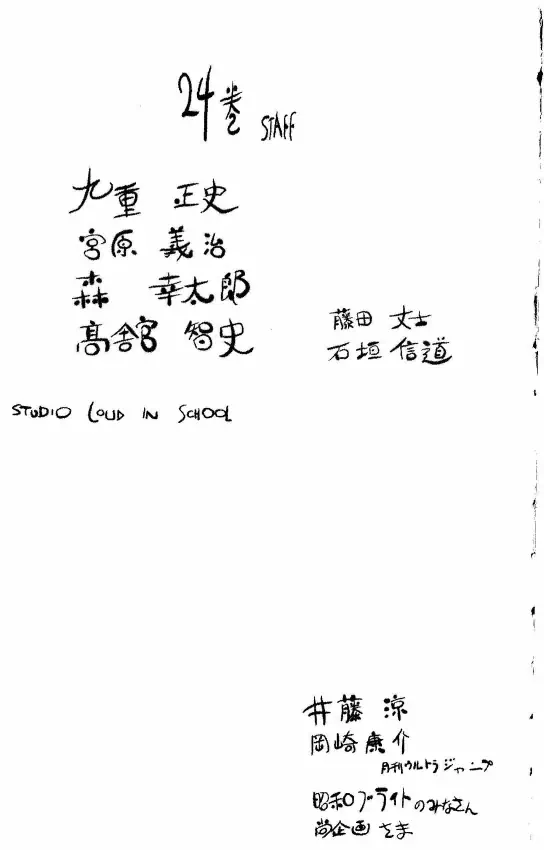 24巻 STAFF
九重 正史
宮原 義治
森 幸太郎
高舘宮 智史
藤田 丈士
石垣 信道
STUDIO LOUD IN SCHOOL
井藤 涼
岡崎 康介
月刊ウルトラジャンプ
昭和ブライトのみなさん
尚企画さま